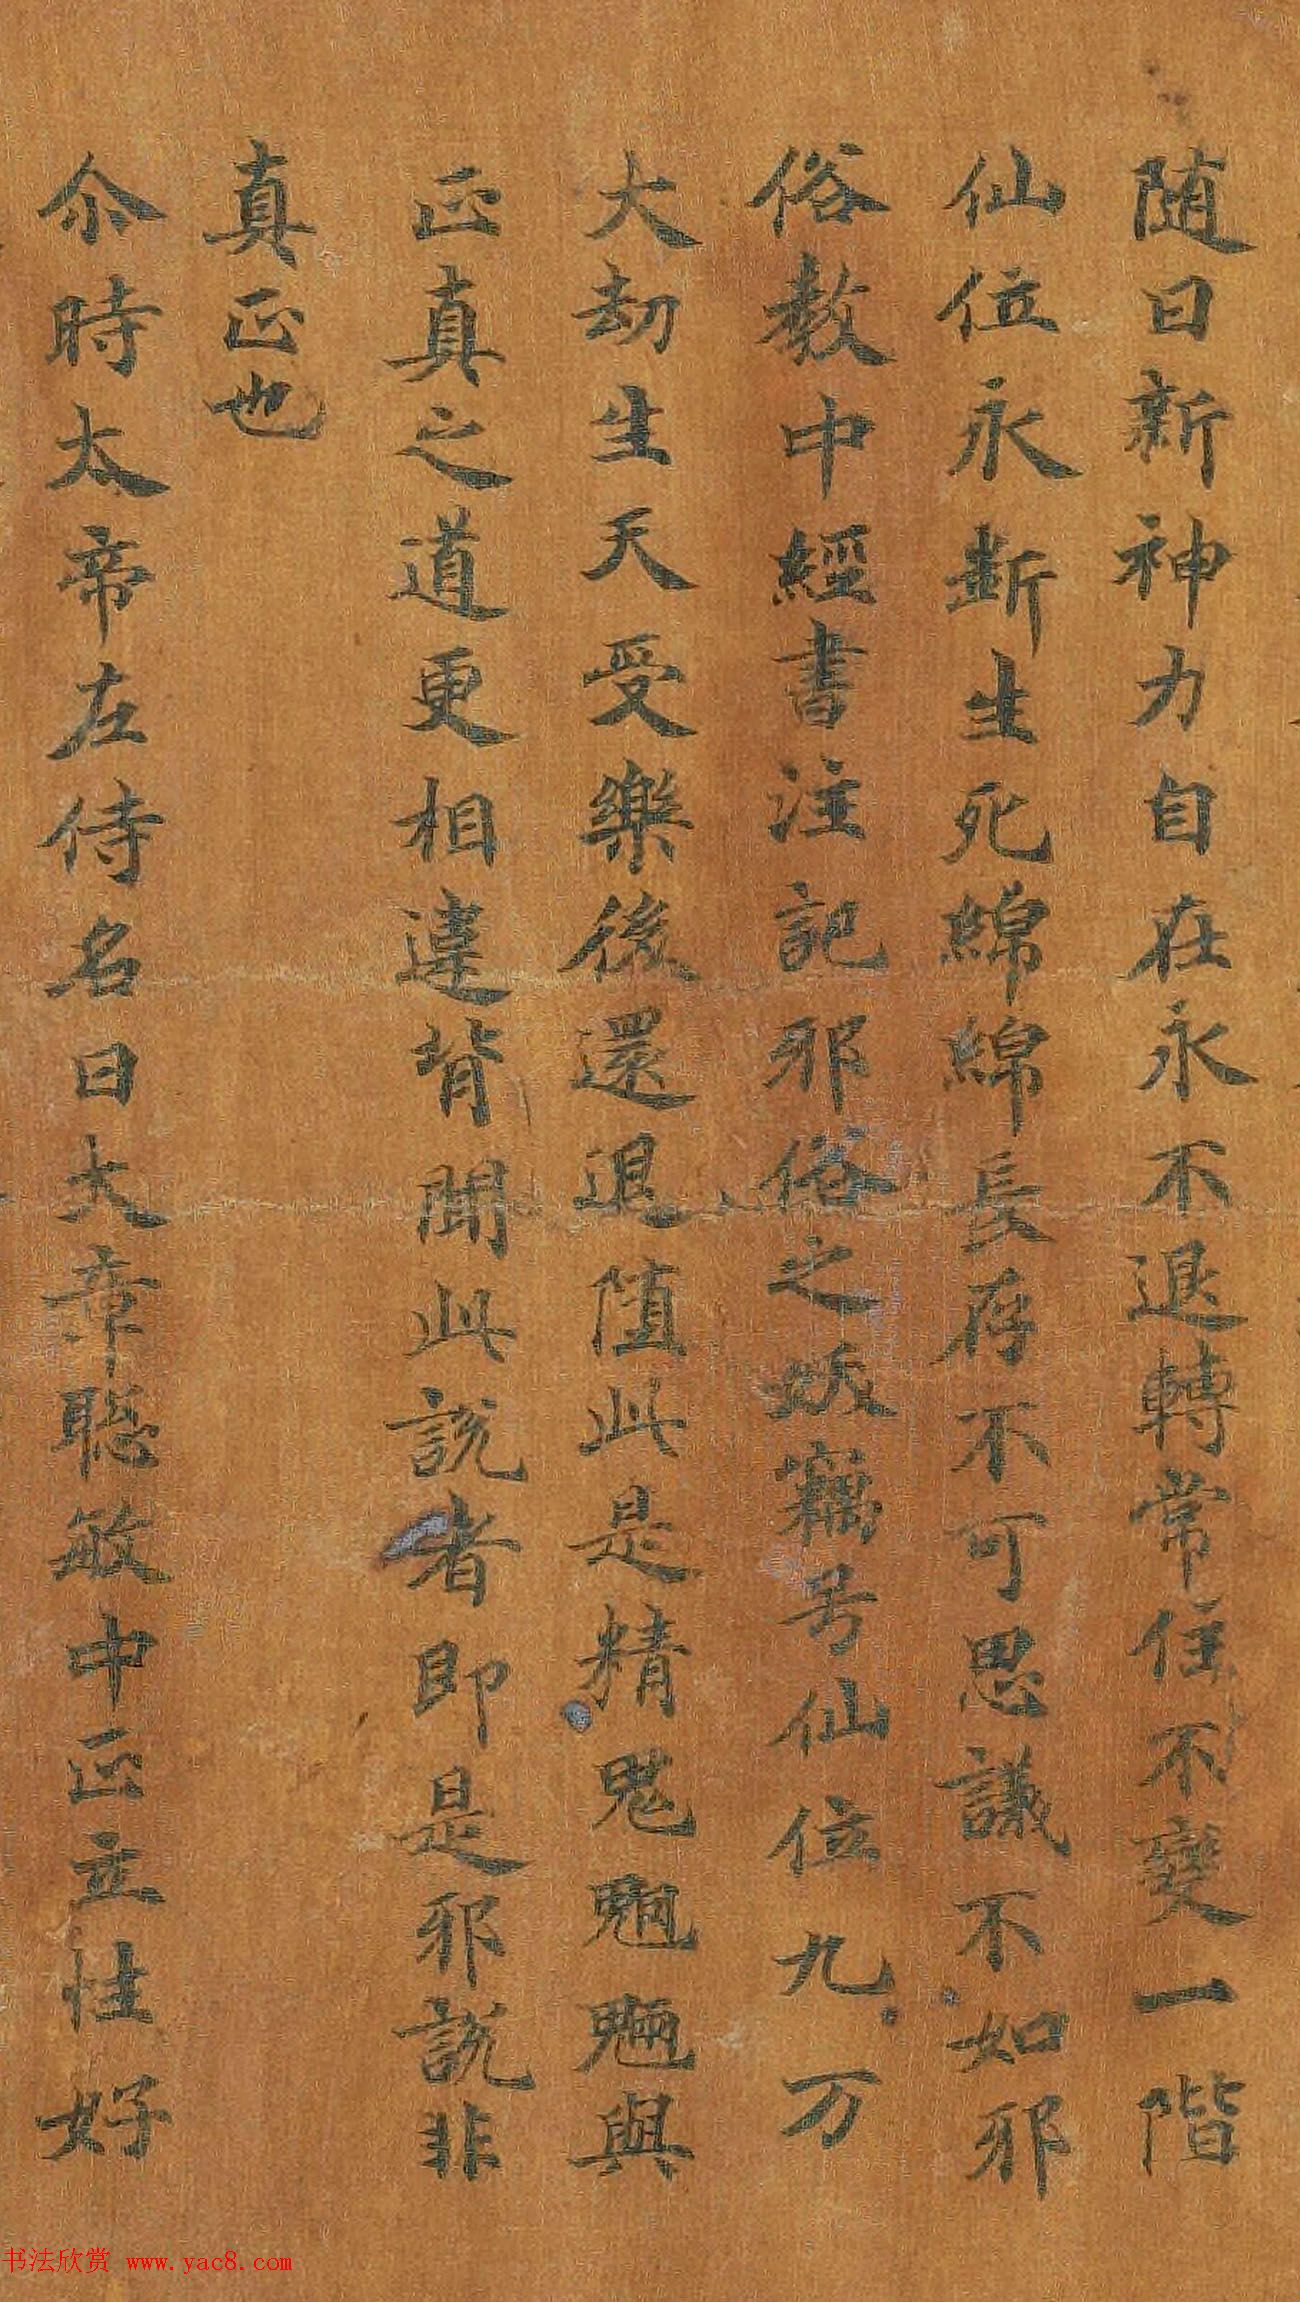 随日新神力自在永不退轉常住不變一階
仙位永斷生死綿綿長存不可思議不如邪
俗教中經書注記邪俗之妖竊号仙位九万
大劫生天受樂後還退墮此是精鬽魍魎與
正真之道更相違背聞此說者即是邪說非
真正也
尒時太帝左侍名曰大章聰敏中正立性好
书法欣赏 www.yac8.com